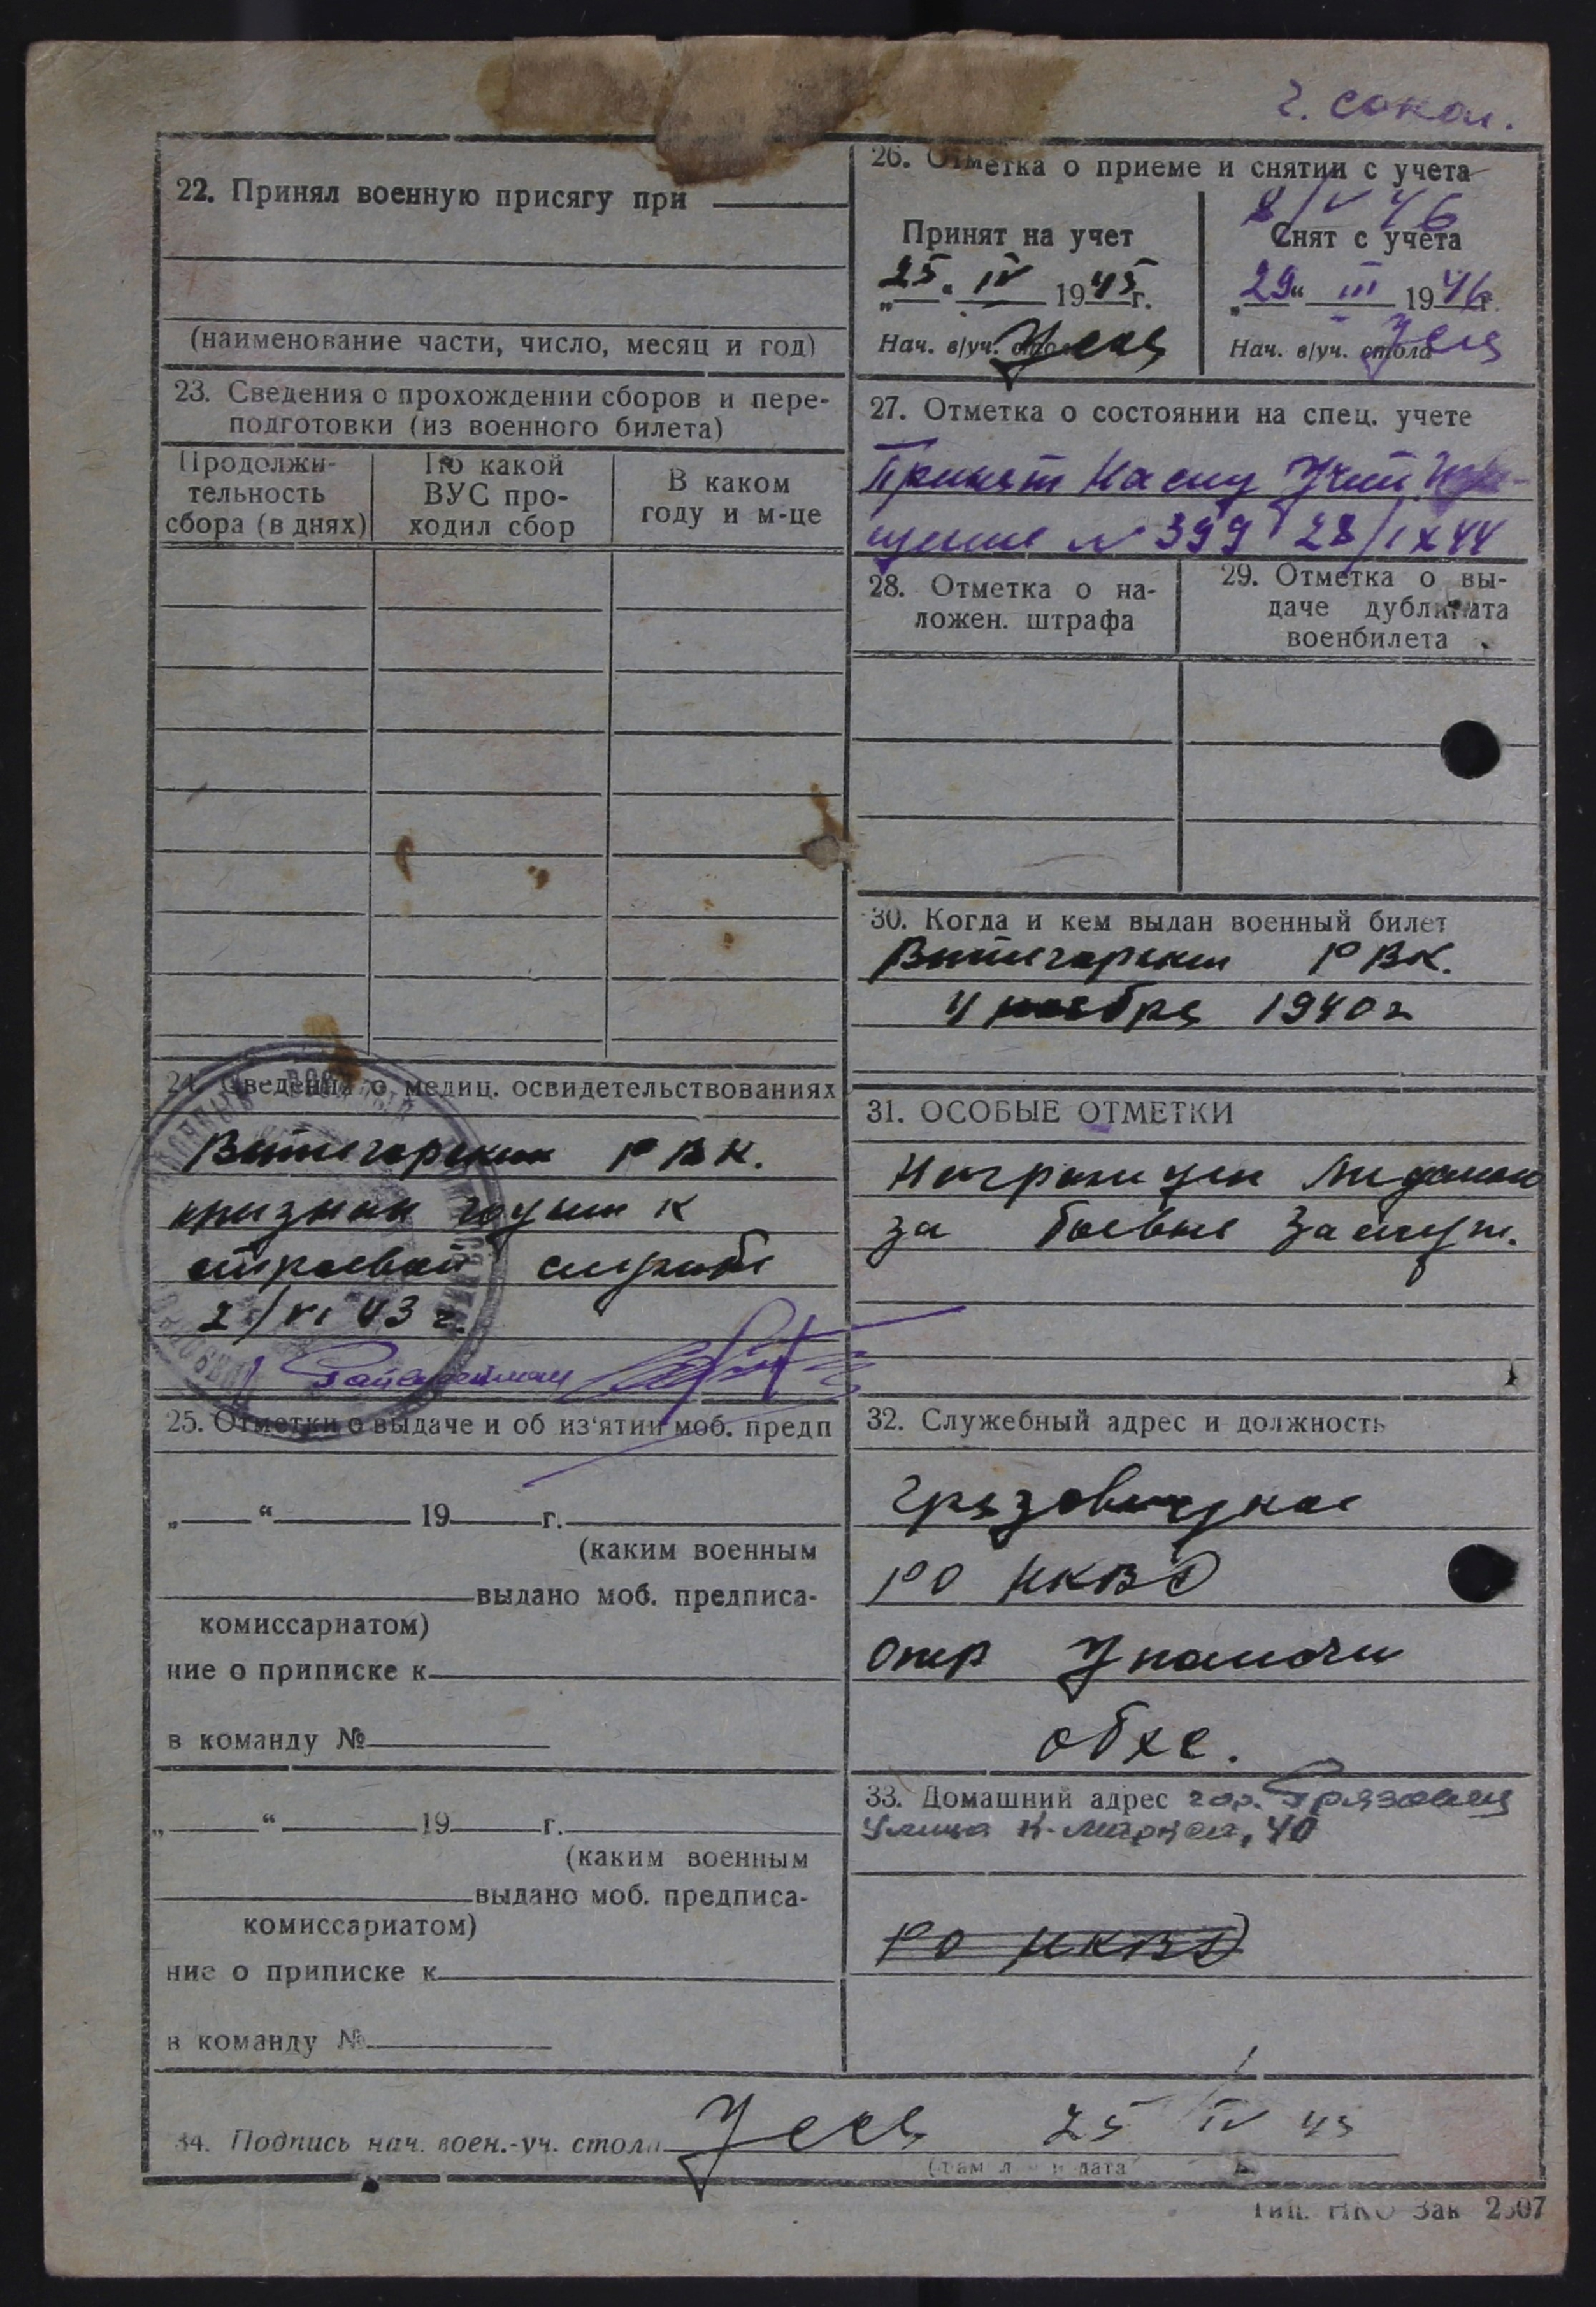 г. Сокол.
22. Принял военную присягу при
(наименование части, число, месяц и год)
23. Сведения о прохождении сборов и пере-
подготовки (из военного билета)
Продолжи-
тельность
сбора (в днях)
По какой
ВУС про-
ходил сбор
В каком
году и м-це
24. Сведения о медиц. освидетельствованиях
Вытегорским РВК.
признан годным к
строевой службе
2/VI 43 г.
25. Отметки о выдаче и об из'ятии моб. предп
„ “ 19 г.
(каким военным
выдано моб. предписа-
комиссариатом)
ние о приписке к
в команду №
„ “ 19 г.
(каким военным
выдано моб. предписа-
комиссариатом)
ние о приписке к
в команду №
26. Отметка о приеме и снятии с учета
8/V 46
Принят на учет
„25“ IV 1945г.
Нач. в/уч. стола
Снят с учета
„29“ III 1946г.
Нач. в/уч. стола
27. Отметка о состоянии на спец. учете
Принят на спец учет
№ 399 28/IX 44
28. Отметка о на-
ложен. штрафа
29. Отметка о вы-
даче дубликата
военбилета
30. Когда и кем выдан военный билет
Вытегорским РВК.
4 ноября 1940 г
31. ОСОБЫЕ ОТМЕТКИ
Награжден медалью
за боевые заслуги.
32. Служебный адрес и должность
Грязовецкое
РО НКВД
опер уполномоч
обхс.
33. Домашний адрес гор. Грязовец
улица К-Маркса, 40
РО НКВД
34. Подпись нач. воен.-уч. стола 25 IV 45
Тип. НКО Зак 2507